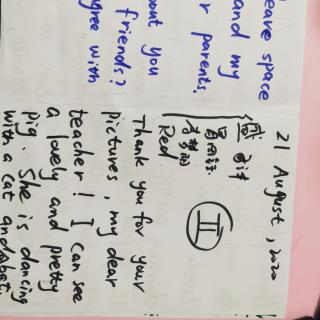 eave space
and my
r parents.
out you
friends?
gree with
21 August, 2020
Red
II
Thank you for your
pictures, my dear
teacher! I can see
a lovely and pretty
pig. She is dancing
with a cat and